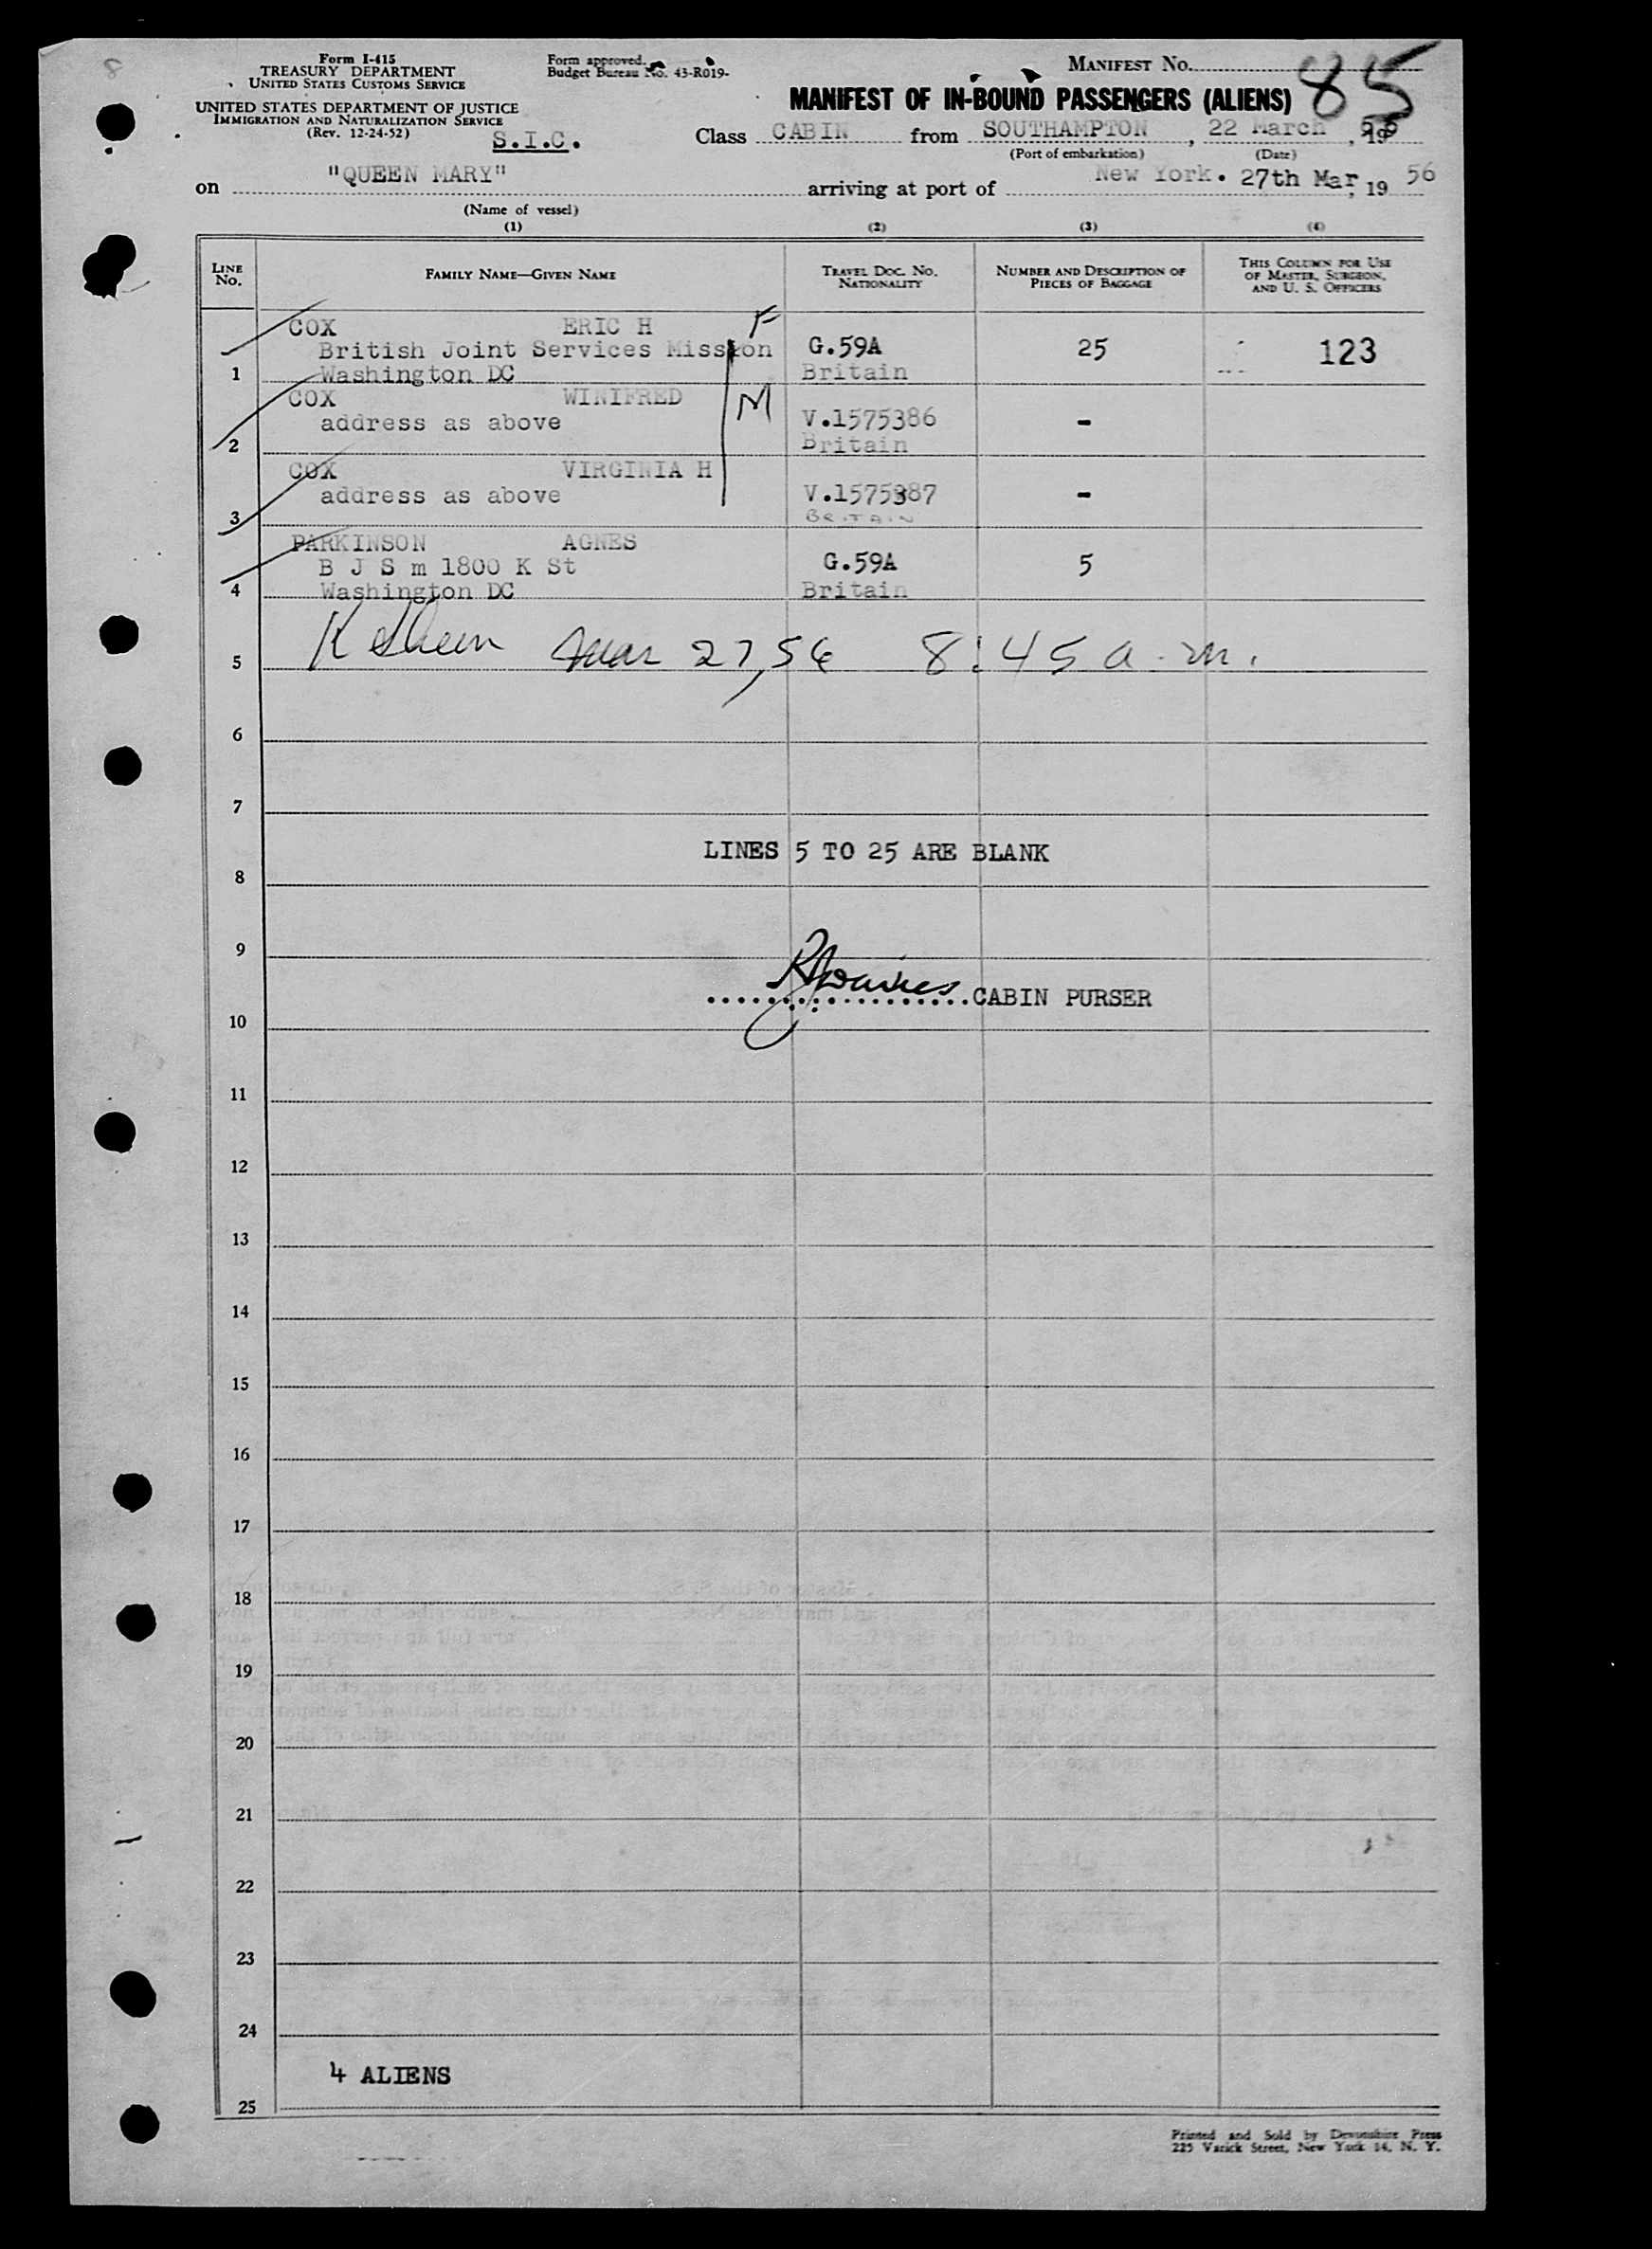 8
Form I-415
TREASURY DEPARTMENT
UNITED STATES CUSTOMS SERVICE
UNITED STATES DEPARTMENT OF JUSTICE
IMMIGRATION AND NATURALIZATION SERVICE
(Rev. 12-24-52)
S.I.C.
Form approved.
Budget Bureau No. 43-R019-
MANIFEST No. 85
MANIFEST OF IN-BOUND PASSENGERS (ALIENS)
Class CABIN from SOUTHAMPTON, 22 March, 1956
(Port of embarkation) (Date)
on "QUEEN MARY" arriving at port of New York. 27th Mar, 19 56
(Name of vessel)
(1) (2) (3) (4)
LINE No.
FAMILY NAME—GIVEN NAME
TRAVEL DOC. NO. NATIONALITY
NUMBER AND DESCRIPTION OF PIECES OF BAGGAGE
THIS COLUMN FOR USE OF MASTER, SURGEON, AND U. S. OFFICERS
COX ERIC H F
British Joint Services Mission G.59A 25 123
1 Washington DC Britain
COX WINIFRED M
address as above V.1575386 -
2 Britain
COX VIRGINIA H
address as above V.1575387 -
3 BRITAIN
PARKINSON AGNES
B J S m 1800 K St G.59A 5
4 Washington DC Britain
5 Mar 27, 56 8:45 a.m.
6
7
LINES 5 TO 25 ARE BLANK
8
9
CABIN PURSER
10
11
12
13
14
15
16
17
18
19
20
21
22
23
24
4 ALIENS
25
Printed and Sold by Devonshire Press
225 Varick Street, New York 14, N. Y.